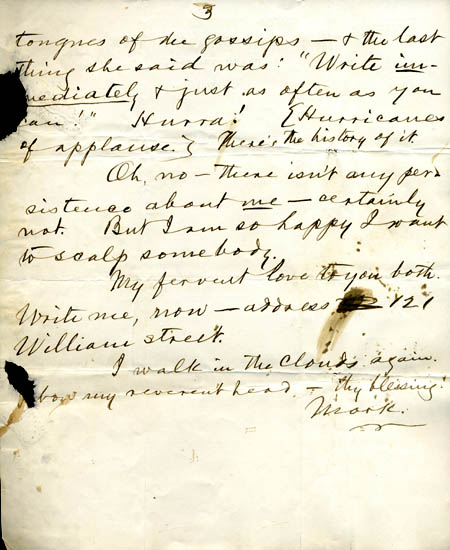 3
tongues of the gossips — & the last
thing she said was: "Write im-
mediately & just as often as you
can!" Hurra! [Hurricanes
of applause.] There's the history of it.
Oh, no — there isn't any per-
sistence about me — certainly
not. But I am so happy I want
to scalp somebody.
My fervent love to you both.
Write me, now — address 121
William street.
I walk in the clouds again.
I bow my reverent head — thy blessing!
Mark.